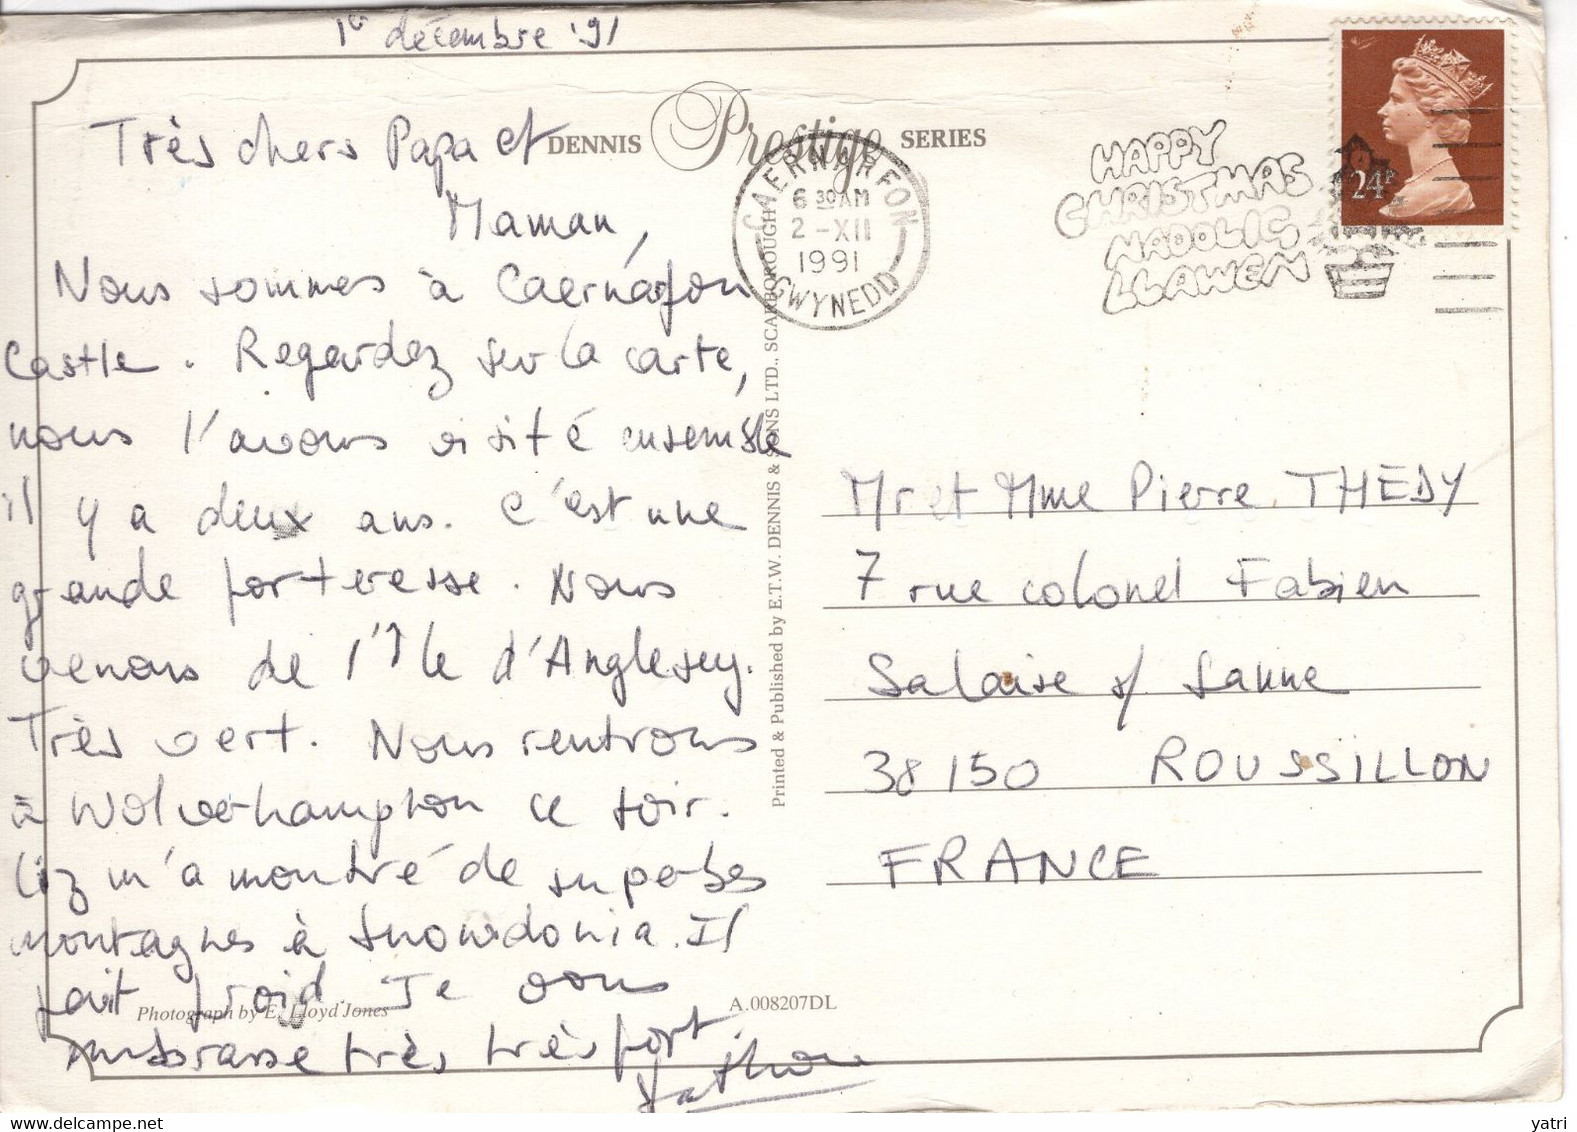 1er décembre '91
Très chers Papa et
Maman,
Nous sommes à Caernarfon
Castle. Regardez sur la carte,
nous l'avons visité ensemble
il y a deux ans. C'est une
grande forteresse. Nous
venons de l'Île d'Anglesey.
Très vert. Nous rentrons
à Wolverhampton ce soir.
Liz m'a montré de superbes
montagnes à Snowdonia. Il
fait froid. Je vous
embrasse très très fort.
DENNIS Prestige SERIES
Photograph by E. Lloyd Jones
A.008207DL
Printed & Published by E.T.W. DENNIS & SONS LTD., SCARBOROUGH
CAERNARFON
6 30AM
2-XII
1991
GWYNEDD
HAPPY
CHRISTMAS
NADOLIG
LLAWEN
24P
Mr et Mme Pierre THEDY
7 rue colonel Fabien
Salaise s/ Sanne
38150 ROUSSILLON
FRANCE
yatri
delcampe.net